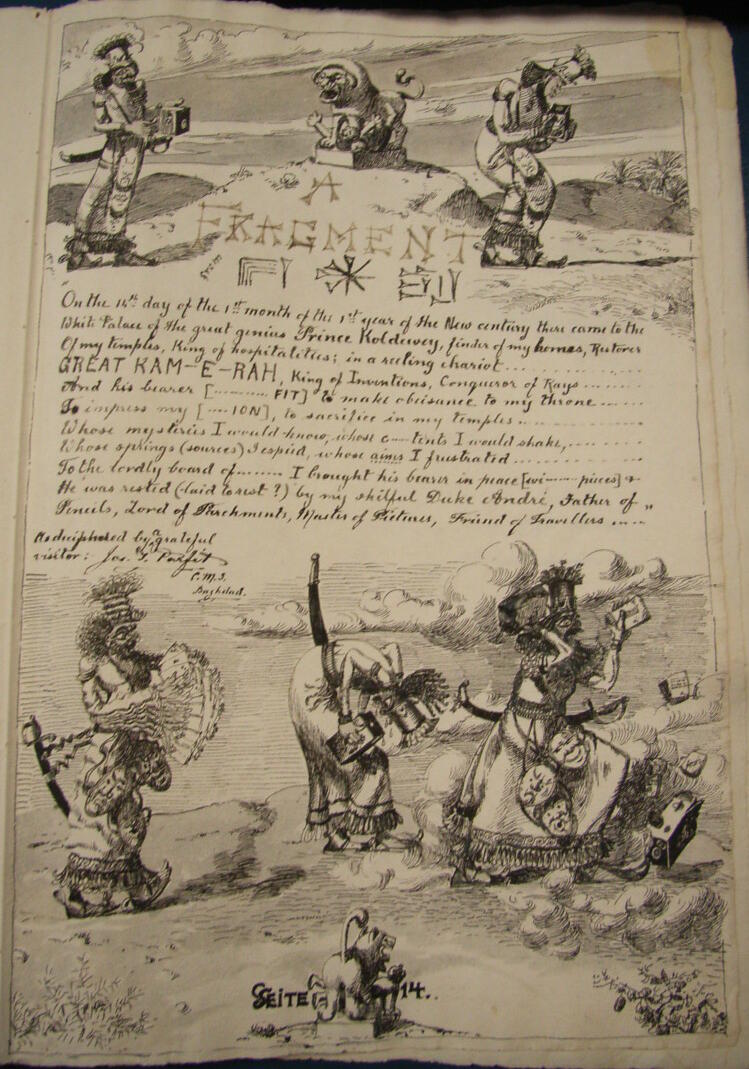 A
FRAGMENT
from
"On the 14th day of the 1st month of the 1st year of the New century there came to the
White Palace of the great genius Prince Koldewey, finder of my homes, Restorer
Of my temples, King of hospitalities; in a reeling chariot ............
GREAT KAM-E-RAH, King of Inventions, Conqueror of Rays ......
And his bearer [......... FIT] to make obeisance to my throne ....
To impress my [.... ION], to sacrifice in my temples ............
Whose mysteries I would know, whose c--tents I would shake, ......
Whose springs (sources) I espied, whose aims I frustrated ........
To the lordly board of ....... I brought his bearer in peace [wi--- pieces] &
He was rested (laid to rest?) by my skilful Duke André, Father of
Pencils, Lord of Parchments, Master of Pictures, Friend of Travellers ...."
As deciphered by a grateful
visitor: Jos. T. Parfit
C.M.S.
Baghdad.
SEITE 14..